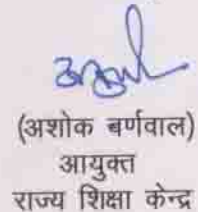 (अशोक बर्णवाल)
आयुक्त
राज्य शिक्षा केन्द्र